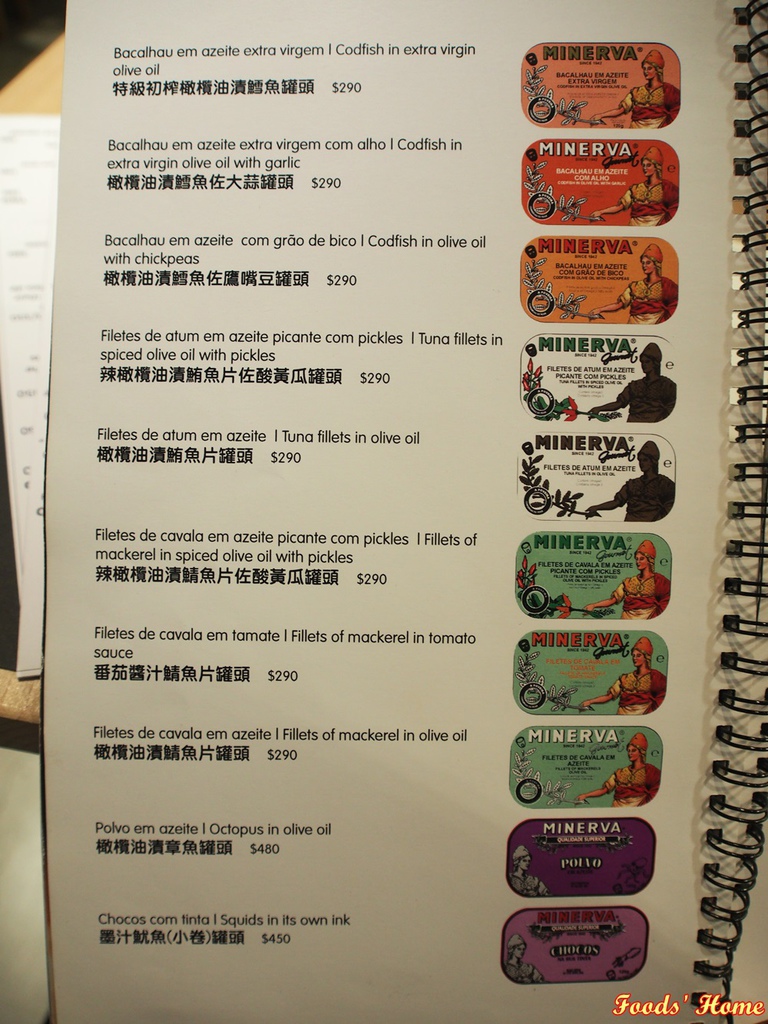 Bacalhau em azeite extra virgem | Codfish in extra virgin
olive oil
特級初榨橄欖油漬鱈魚罐頭 $290
MINERVA
SINCE 1942
BACALHAU EM AZEITE
EXTRA VIRGEM
CODFISH IN EXTRA VIRGIN OLIVE OIL
Bacalhau em azeite extra virgem com alho | Codfish in
extra virgin olive oil with garlic
橄欖油漬鱈魚佐大蒜罐頭 $290
MINERVA
Gourmet
BACALHAU EM AZEITE
COM ALHO
CODFISH IN OLIVE OIL WITH GARLIC
Bacalhau em azeite com grão de bico | Codfish in olive oil
with chickpeas
橄欖油漬鱈魚佐鷹嘴豆罐頭 $290
MINERVA
SINCE 1942
BACALHAU EM AZEITE
COM GRÃO DE BICO
CODFISH IN OLIVE OIL WITH CHICKPEAS
Filetes de atum em azeite picante com pickles | Tuna fillets in
spiced olive oil with pickles
辣橄欖油漬鮪魚片佐酸黃瓜罐頭 $290
MINERVA
SINCE 1942
Gourmet
FILETES DE ATUM EM AZEITE
PICANTE COM PICKLES
TUNA FILLETS IN SPICED OLIVE OIL
WITH PICKLES
Filetes de atum em azeite | Tuna fillets in olive oil
橄欖油漬鮪魚片罐頭 $290
MINERVA
SINCE 1942
Gourmet
FILETES DE ATUM EM AZEITE
TUNA FILLETS IN OLIVE OIL
Filetes de cavala em azeite picante com pickles | Fillets of
mackerel in spiced olive oil with pickles
辣橄欖油漬鯖魚片佐酸黃瓜罐頭 $290
MINERVA
SINCE 1942
Gourmet
FILETES DE CAVALA EM AZEITE
PICANTE COM PICKLES
FILLETS OF MACKERELS IN SPICED
OLIVE OIL WITH PICKLES
Filetes de cavala em tamate | Fillets of mackerel in tomato
sauce
番茄醬汁鯖魚片罐頭 $290
MINERVA
SINCE 1942
Gourmet
FILETES DE CAVALA EM
Filetes de cavala em azeite | Fillets of mackerel in olive oil
橄欖油漬鯖魚片罐頭 $290
MINERVA
SINCE 1942
Gourmet
FILETES DE CAVALA EM
AZEITE
FILLETS OF MACKERELS
OLIVE OIL
Polvo em azeite | Octopus in olive oil
橄欖油漬章魚罐頭 $480
MINERVA
QUALIDADE SUPERIOR
POLVO
Chocos com tinta | Squids in its own ink
墨汁魷魚(小卷)罐頭 $450
MINERVA
QUALIDADE SUPERIOR
CHOCOS
Foods' Home